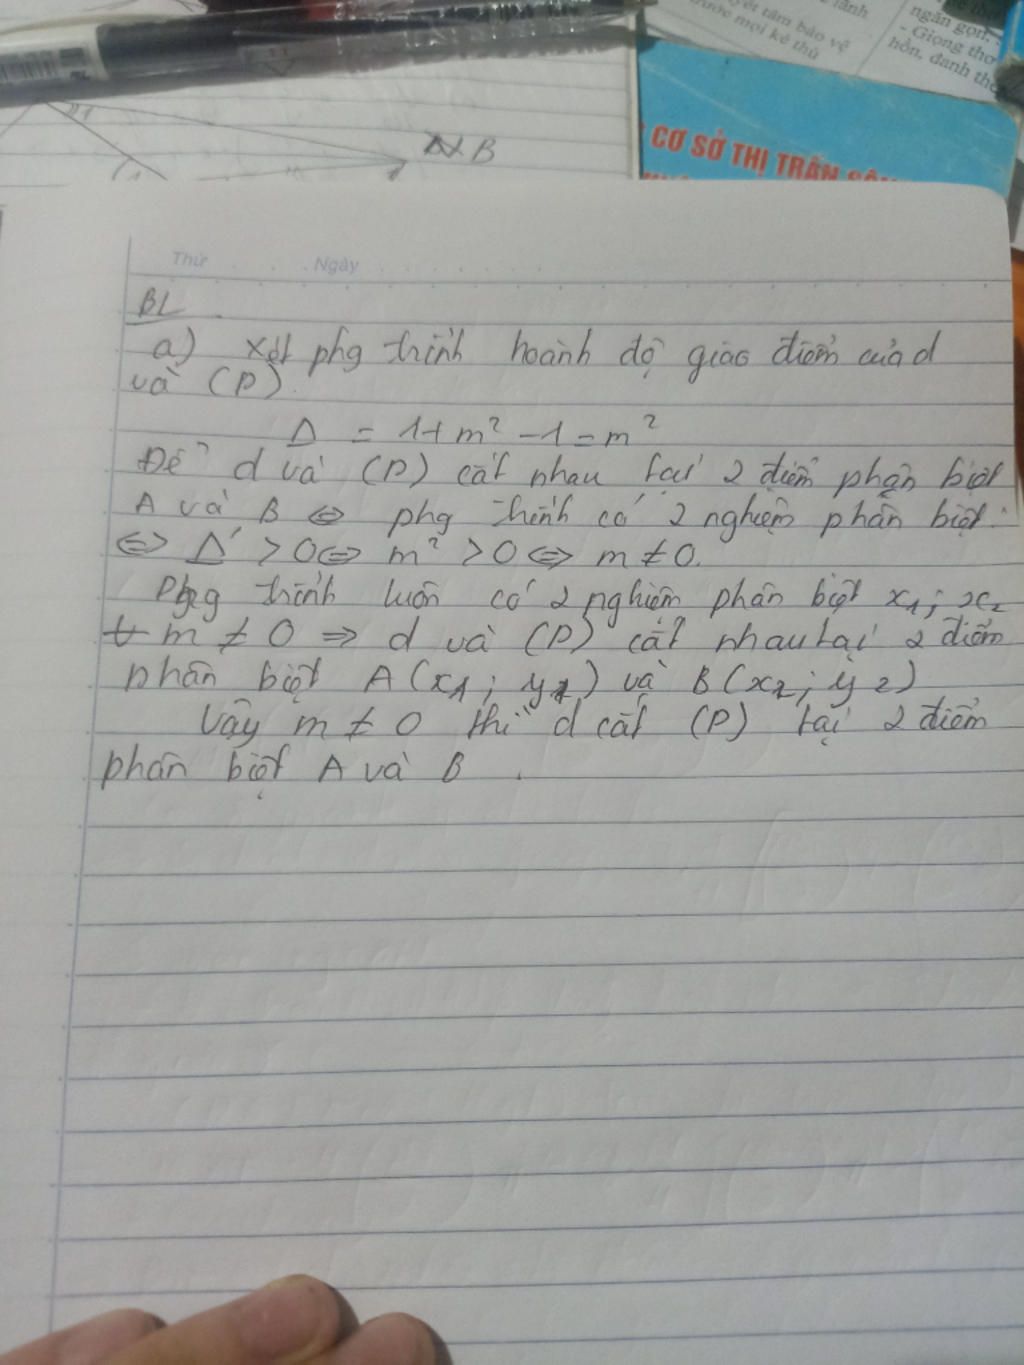 yết tâm bảo vệ
trước mọi kẻ thù
lành
ngắn gọn,
- Giọng thơ
hồn, đanh
CƠ SỞ THỊ TRẤN
B
Thứ Ngày
BL
a) Xét phg trình hoành độ giao điểm của d
và (P).
Δ = 1 + m² - 1 = m²
Để d và (P) cắt nhau tại 2 điểm phân biệt
A và B ⇔ phg trình có 2 nghiệm phân biệt.
⇔ Δ' > 0 ⇔ m² > 0 ⇔ m ≠ 0.
Phg trình luôn có 2 nghiệm phân biệt x₁; x₂
m ≠ 0 ⇒ d và (P) cắt nhau tại 2 điểm
phân biệt A(x₁; y₁) và B(x₂; y₂)
Vậy m ≠ 0 thì d cắt (P) tại 2 điểm
phân biệt A và B.